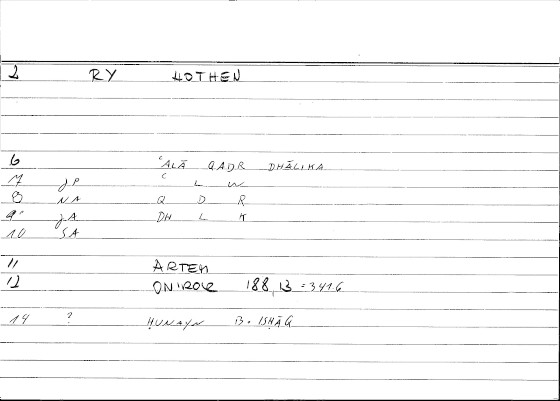 2 RY HOTHEN
6 ʿALĀ QADR DHĀLIKA
7 JP ʿ L W
8 NA Q D R
9 JA DH L K
10 SA
11 ARTEM
12 ONIROCR 188, 13 = 3416
14 ? ḤUNAYN B. ISḤĀQ